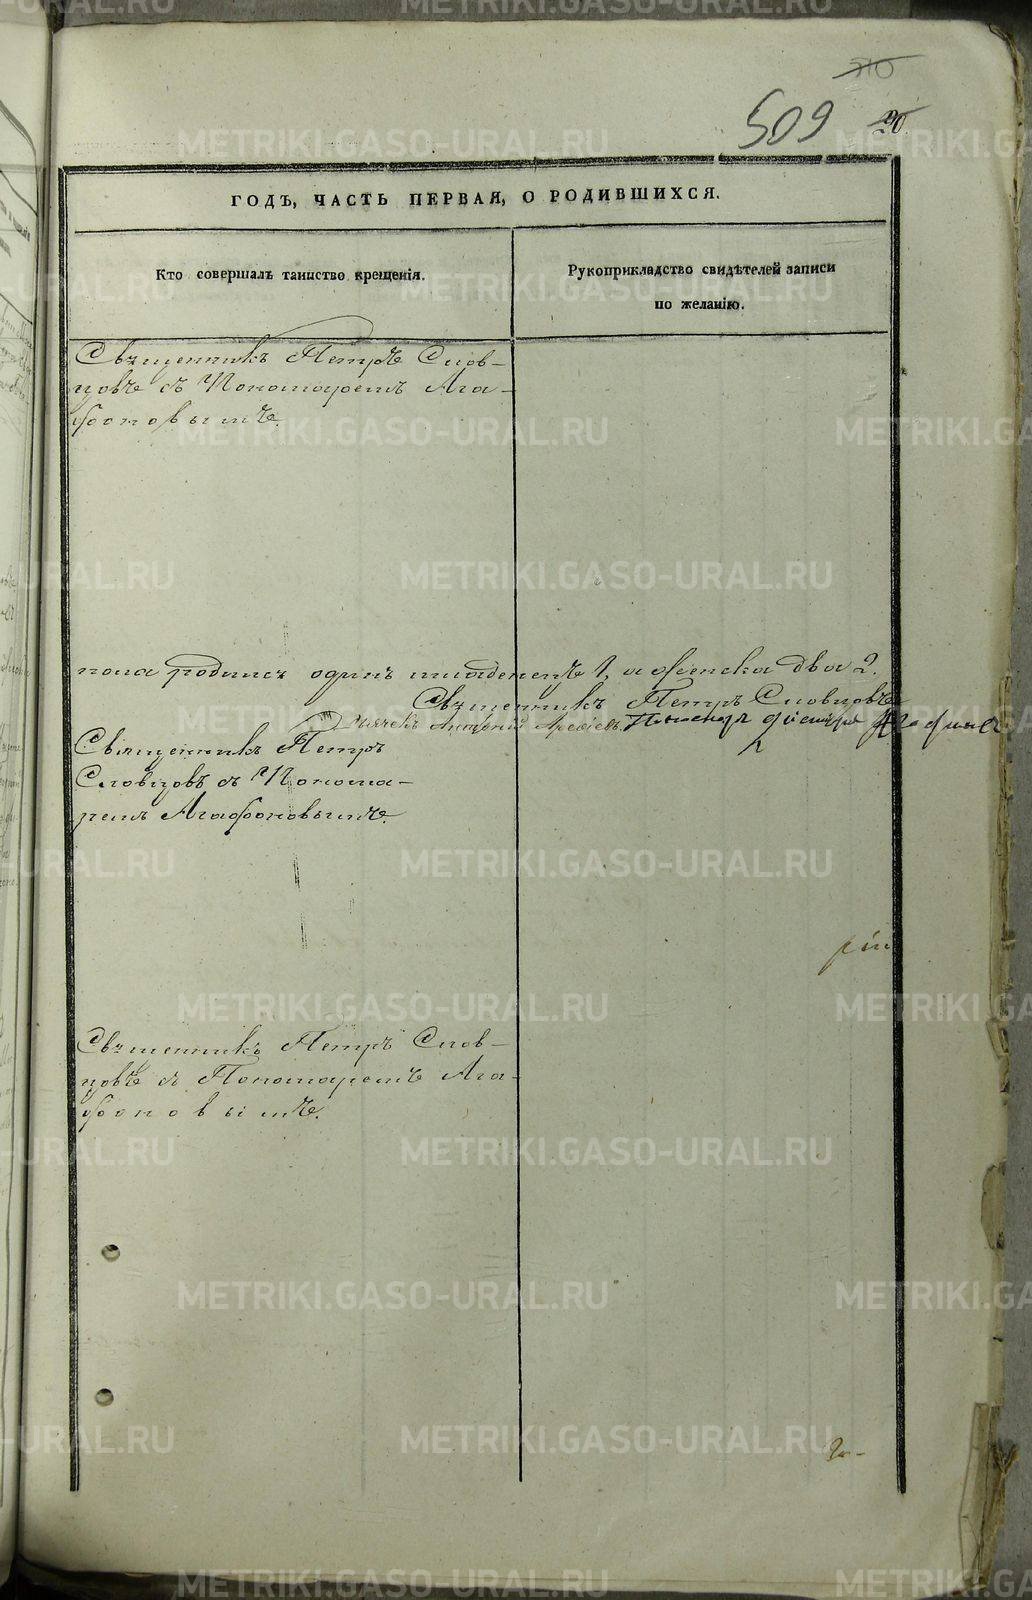 509 20.
ГОДЪ, ЧАСТЬ ПЕРВАЯ, О РОДИВШИХСЯ.
Кто совершалъ таинство крещенія.
Рукоприкладство свидѣтелей записи
по желанію.
Священникъ Петръ Слов-
цовъ съ Пономаремъ Ага-
фоновымъ.
пола родился одинъ младенецъ 1, а женска два 2.
Священникъ Петръ Словцовъ
Дьячекъ Антоній
Священникъ Петръ
Словцовъ съ Понома-
ремъ Агафоновымъ.
Священникъ Петръ Слов-
цовъ съ Пономаремъ Ага-
фоновымъ.
METRIKI.GASO-URAL.RU